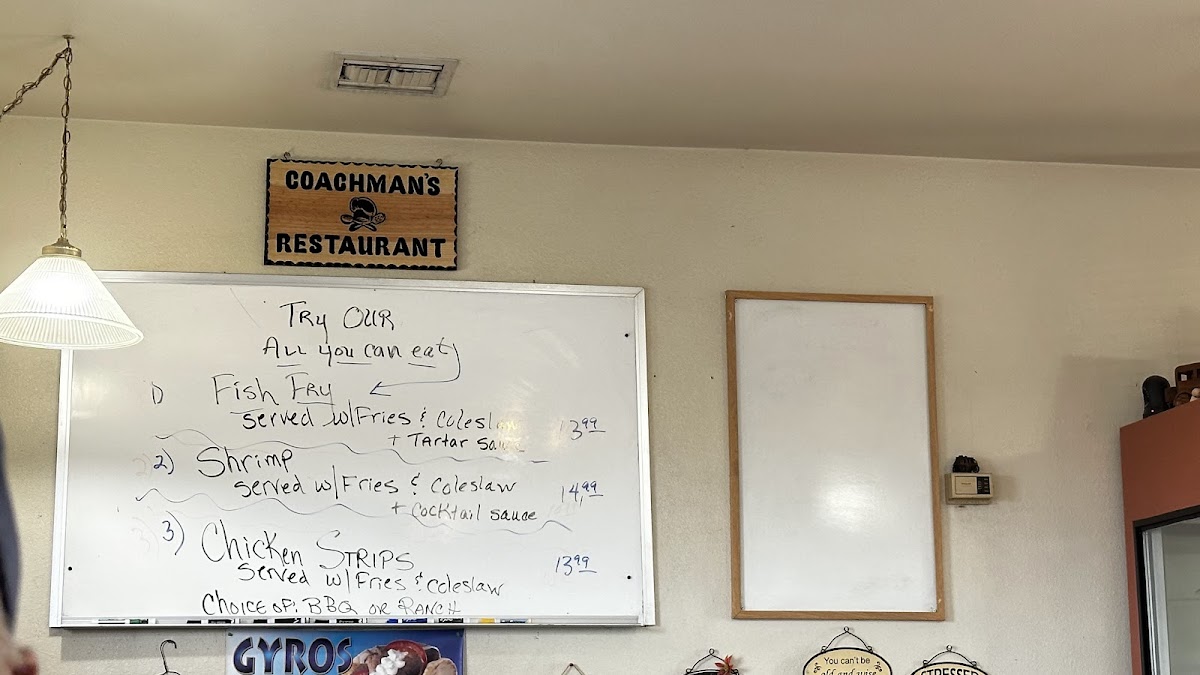 COACHMAN'S
RESTAURANT
TRy OUR
ALL you can eat
1) Fish FRy
served w/Fries & Coleslaw 13.99
+ TArtar sauce
2) Shrimp
served w/Fries & Coleslaw 14.99
+ Cocktail sauce
3) Chicken STRIPS
served w/Fries & Coleslaw 13.99
Choice of: BBQ or RANCH
GYROS
You can't be
old and wise
STRESSED